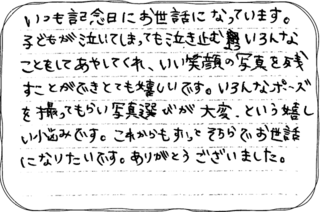 いつも記念日にお世話になっています。
子どもが泣いてしまっても泣き止むまでいろんな
ことをしてあやしてくれ、いい笑顔の写真を残
すことができとても嬉しいです。いろんなポーズ
を撮ってもらい写真選びが大変、という嬉し
い悩みです。これからもずっとそちらでお世話
になりたいです。ありがとうございました。